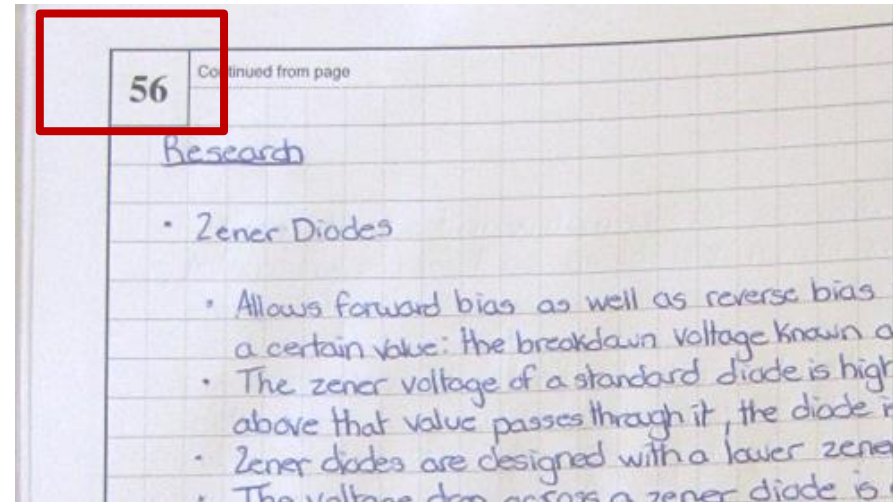 56 Continued from page
Research
· Zener Diodes
· Allows forward bias as well as reverse bias
a certain value: the breakdown voltage known
· The zener voltage of a standard diode is high
above that value passes through it, the diode
· Zener diodes are designed with a lower zene
· The voltage drop across a zener diode is